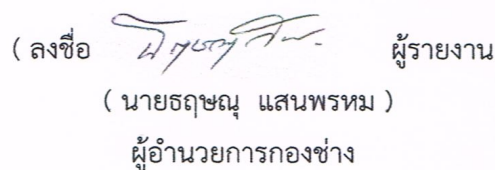 ( ลงชื่อ ผู้รายงาน
( นายธฤษณุ แสนพรหม )
ผู้อำนวยการกองช่าง